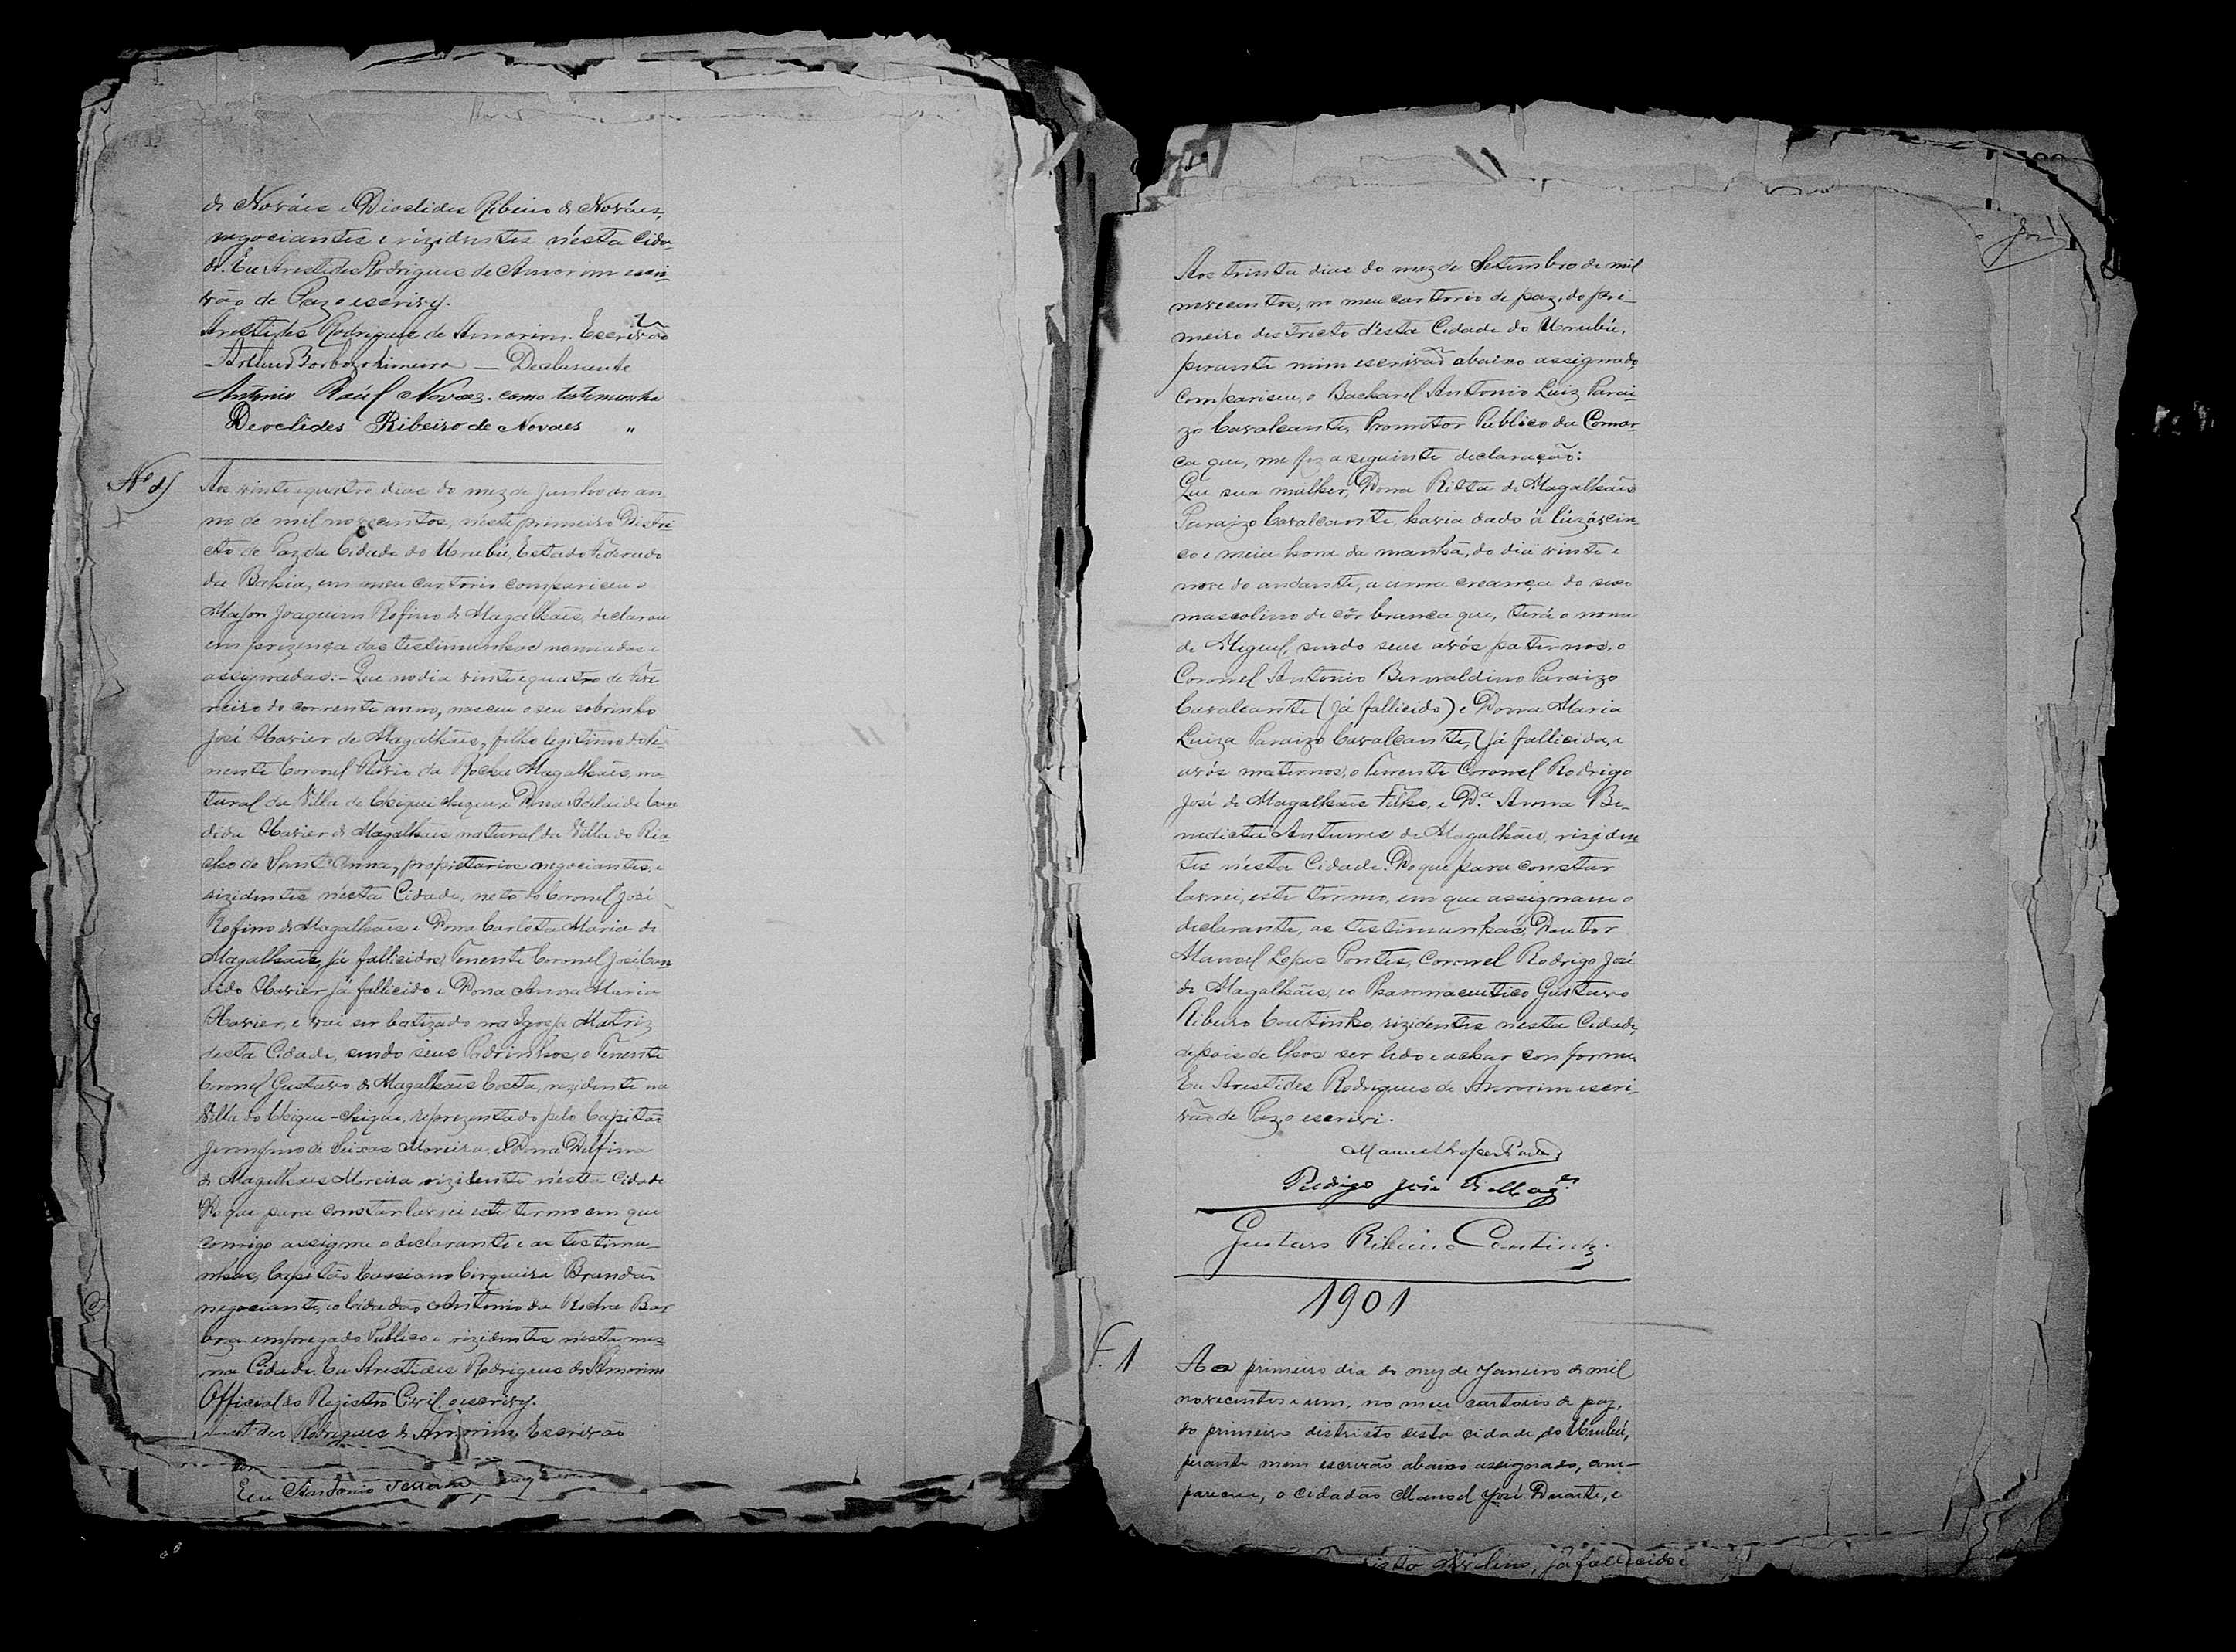 de Nováes e Dioclides Ribeiro de Nováes,
negociantes e rizidentes n'esta Cida-
de. Eu Arestides Rodrigues de Amorim escri-
vão de Paz o escrivy.
Arestides Rodrigues de Amorim. Escrivão
Declarante
Antonio Raúl Nováes. como testemunha
Deoclides Ribeiro de Novaes "
Aos vinte e quatro dias do mez de Junho do an-
no de mil novecentos, néste primeiro Distri-
cto de Paz da Cidade do Urubú, Estado Federado
da Bahia, em meu cartorio compareceu o
Major Joaquim Rofino de Magalhães, declarou
em prezença das testimunhas nomeadas e
assignadas:- Que no dia vinte e quatro de Feve-
reiro do corrente anno, nasceu o seu sobrinho
José Xavier de Magalhães, filho legitimo do Te-
nente Coronel Flavio da Rocha Magalhães, na-
tural da Villa de Chique Chique e Dona Adelaide Can-
dida Xavier de Magalhães natural da Villa do Ria-
cho de Sant'Anna, propietarios negociantes, e
rizidentes nésta Cidade, neto do Coronel José
Rofino de Magalhães e Dona Carlota Maria de
Magalhães já fallicidos, Tenente Coronel José Can-
dido Xavier já fallicido e Dona Anna Maria
Xavier, e vai ser batizado na Igreja Matriz
desta Cidade, sendo seus Padrinhos, o Tenente
Coronel Gustavo de Magalhães Costa, rezidente na
Villa do Chique-Chique, reprezentado pelo Capitão
de Seixas Moreira, e Dona Delfina
de Magalhães Moreira rizidente nésta Cidade
Do que para constar lavrei este termo em que
comigo assigna o declarante e as testimu-
nhas, Capitão Cassiano Cirqueira Brandão
negociante, e o Cidadão Antonio da Rocha Bar-
boza empregado Publico e rizidentes nésta mes-
ma Cidade. Eu Arestides Rodrigues de Amorim
Official do Registro Civil, o escrivy.
Rodrigues de Amorim Escrivão
Aos trinta dias do mez de Setembro de mil
novecentos, no meu cartorio de paz, do pri-
meiro destricto d'ésta Cidade do Urubú,
perante mim escrivão abaixo assignado,
compariceu, o Bacharel Antonio Luiz Parai-
zo Cavalcante, Promotor Publico da Comar-
ca que, me fez a seguinte declaração:
Que sua mulher, Dona Ritta de Magalhães
Paraizo Cavalcante, havia dado á lúz, ás cin-
co e meia hora da manhã, do dia vinte e
nove do andante, a uma creança do sexo
mascolino de côr branca que, terá o nome
de Miguel, sendo seus avós paternos, o
Coronel Antonio Bernaldino Paraizo
Cavalcante (já fallicido) e Dona Maria
Luiza Paraizo Cavalcante, (já fallicida, e
avós maternos, o Tenente Coronel Rodrigo
José de Magalhães Filho, e D.ª Anna Be-
nedicta Antunes de Magalhães, riziden-
tes n'ésta Cidade. Do que para constar
lavrei, este termo, em que assignam o
declarante, as testimunhas, Doutor
Manoel Lopes Pontes, Coronel Rodrigo José
de Magalhães, e o Pharmaceutico Gustavo
Ribeiro Coutinho, rizidentes nesta Cidade,
depois de lhes ser lido e achar conforme.
Eu Arestides Rodrigues de Amorim escri-
vão de Paz, o escrivi.
Manuel Lopes Pontes
Rodrigo José de Mag.es
Gustavo Ribeiro Coutinho.
1901
1
Ao primeiro dia do mez de Janeiro de mil
novecentos e um, no meu cartorio de paz,
do primeiro districto desta cidade do Urubú,
perante mim escrivão abaixo assignado, com-
pareceu, o cidadão Manoel José Duarte, e
já fallecido e